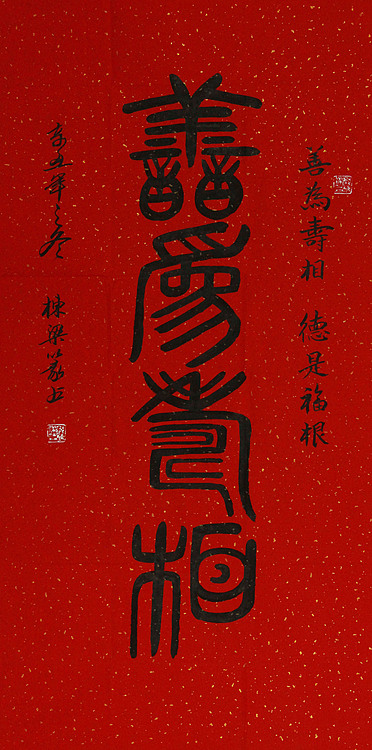 善為壽相 德是福根
善為壽相
辛丑年之冬
棟梁篆書